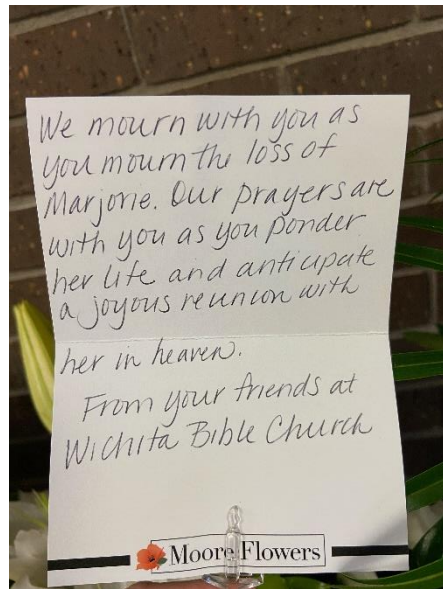 We mourn with you as
you mourn the loss of
Marjorie. Our prayers are
with you as you ponder
her life and anticipate
a joyous reunion with
her in heaven.
From your friends at
Wichita Bible Church
Moore Flowers